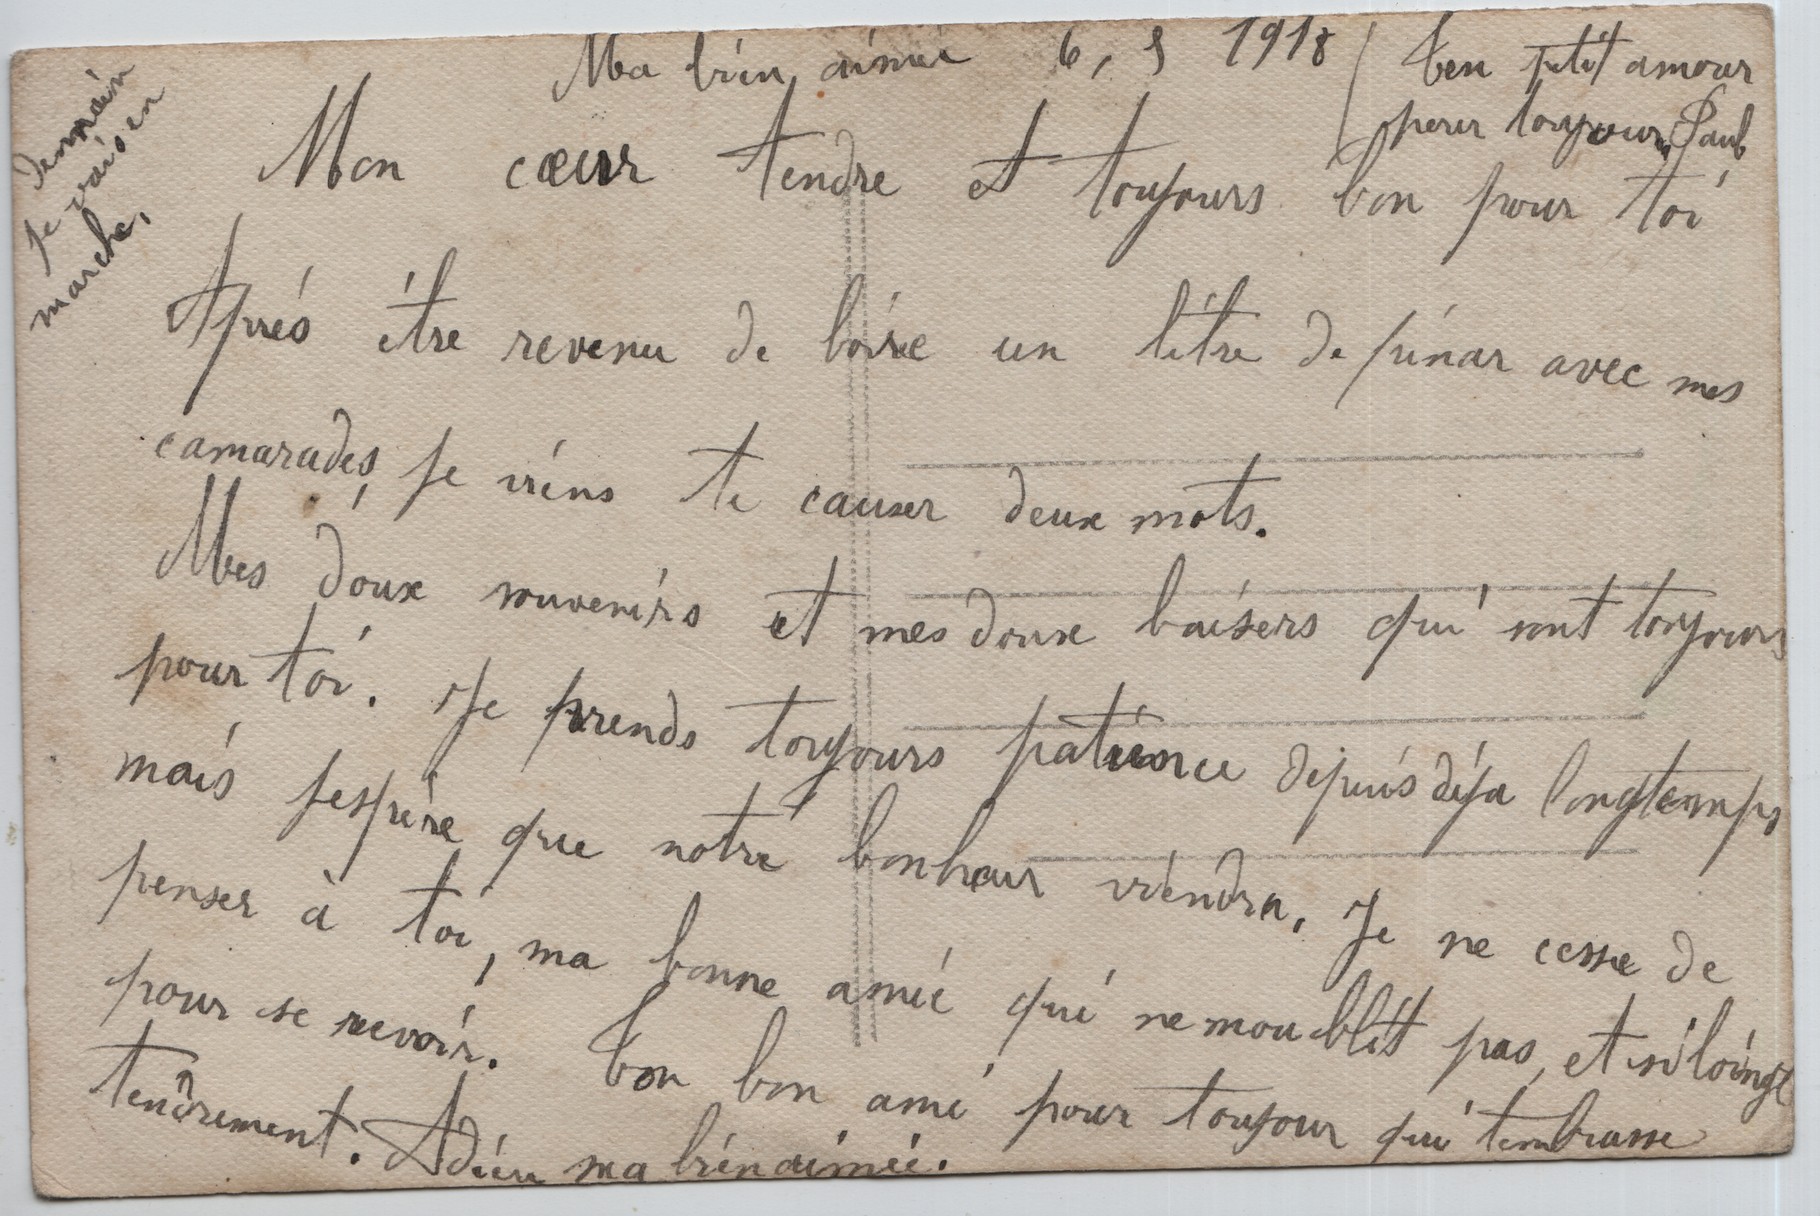 Ma bien aimée 6, 9 1918
Ton petit amour
pour toujours Paul
Demain
je vais en
marche,
Mon cœur tendre et toujours bon pour toi
Aprés être revenu de boire un litre de pinar avec mes
camarades, je viens te causer deux mots.
Mes doux souvenirs et mes doux baisers qui sont toujours
pour toi. Je prends toujours patience depuis déja longtemps
mais jespère que notre bonheur viendra. Je ne cesse de
penser à toi, ma bonne amie qui ne moublit pas, et si loingt
pour se revoir. Ton bon ami pour toujour qui tembrasse
tendrement. Adieu ma bien aimée.